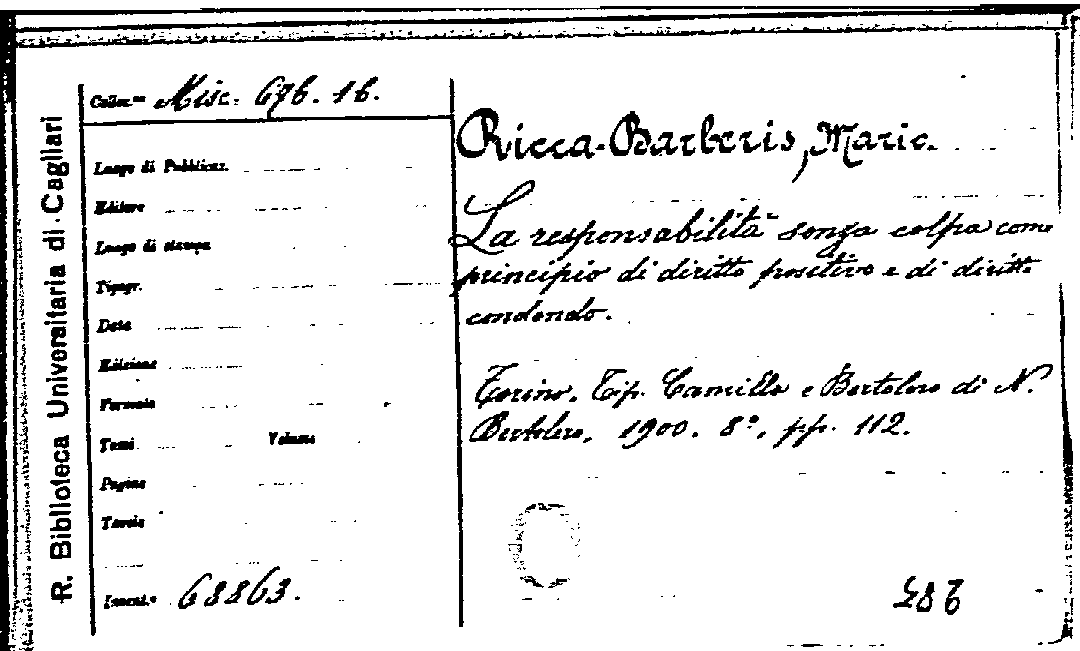 R. Biblioteca Universitaria di Cagliari
Colloc.ne Misc. 676. 16.
Luogo di Pubblicaz.
Editore
Luogo di stampa
Tipogr.
Data
Edizione
Formato
Tomi Volume
Pagine
Tavole
Invent.o 68863.
Ricca-Barberis, Mario.
La responsabilità senza colpa come
principio di diritto positivo e di diritto
condendo.
Torino, Tip. Camilla e Bertolero di N.
Bertolero, 1900. 8°. pp. 112.